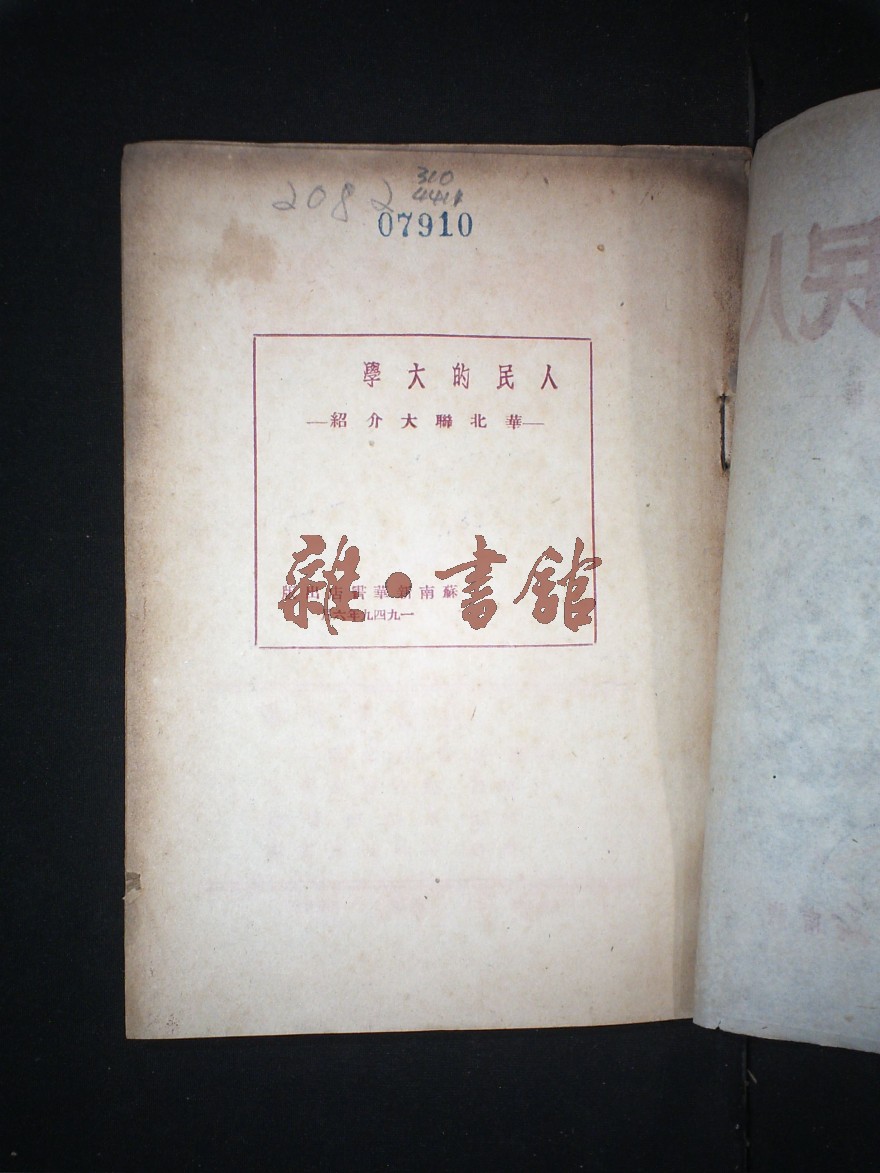 2082
310
07910
人民的大學
—華北聯大介紹—
蘇南新華書店出版
一九四九年六
雜·書館